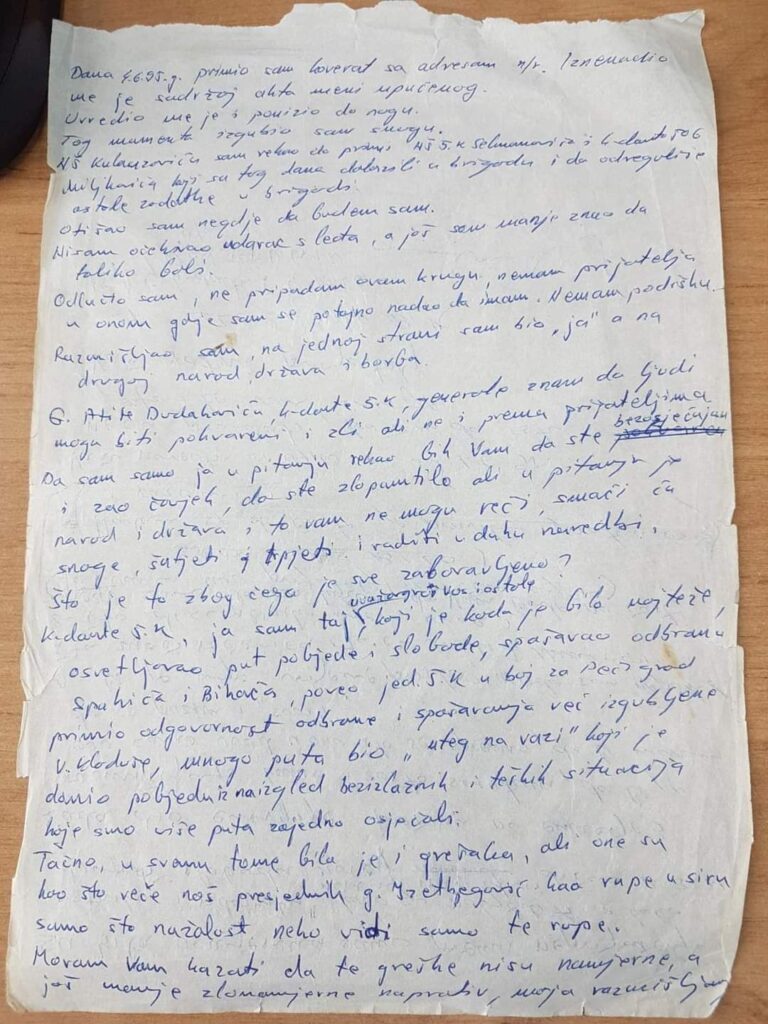 Dana 4.6.95.g. primio sam koverat sa adresam n/r. Iznenadio
me je sadržaj akta meni upućenog.
Uvredio me je i ponizio do nogu.
Tog momenta izgubio sam snagu.
NŠ Kulauzovića sam rekao da primi NŠ 5.K Selmanovića i k-danta 506
Miljkovića koji sa tog dana dolazili u brigadu i da odreguliše
ostale zadatke u brigadi.
Otišao sam negdje da budem sam.
Nisam očekivao udarac s leđa, a još sam manje znao da
toliko boli.
Odlučio sam, ne pripadam ovam krugu, nemam prijatelja
u onom gdje sam se potajno nadao da imam. Nemam podršku.
Razmišljao sam, na jednoj strani sam bio "ja" a na
drugoj narod, država i borba.
G. Atife Dudakoviću, k-dante 5.K, generale znam da ljudi
mogu biti pokvareni i zli ali ne i prema prijateljima
Da sam samo ja u pitanju rekao bih Vam da ste bezosjećajan
i zao čovjek, da ste zlopamtilo ali u pitanju je
narod i država i to vam ne mogu reći, smaći ću
snage, šutjeti i trpjeti i raditi u duhu naredbi.
Što je to zbog čega je sve zaboravljeno?
uvažavajući vas i ostale
K-dante 5.K, ja sam taj, koji je kada je bilo najteže,
osvetljavao put pobjede i slobode, spašavao odbranu
Spahića i Bihaća, poveo jed. 5.K u boj za Pećigrad
primio odgovornost odbrane i spašavanja već izgubljene
V. Kladuše, mnogo puta bio "uteg na vazi" koji je
donio pobjedu iz naizgled bezizlaznih i teških situacija
koje smo više puta zajedno osjećali.
Tačno, u svamu tome bila je i grešaka, ali one su
kao što veče naš presjednik g. Izetbegović kao rupe u siru
samo što nažalost neko vidi samo te rupe.
Moram Vam kazati da te greške nisu namjerne, a
još manje zlonamjerne naprotiv, moja razmišljanja